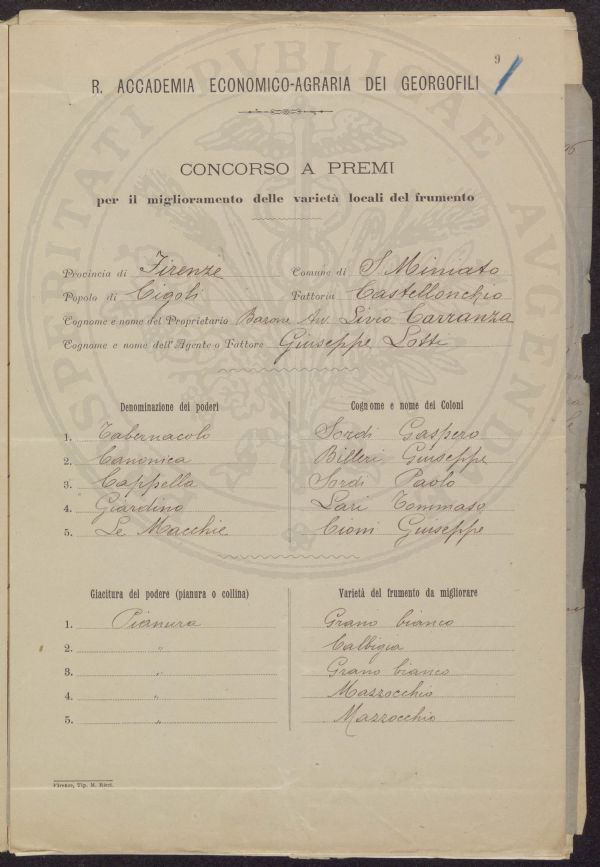 9
R. ACCADEMIA ECONOMICO-AGRARIA DEI GEORGOFILI
CONCORSO A PREMI
per il miglioramento delle varietà locali del frumento
Provincia di Firenze Comune di S. Miniato
Popolo di Cigoli Fattoria Castellonchio
Cognome e nome del Proprietario Barone Av. Livio Carranza
Cognome e nome dell'Agente o Fattore Giuseppe Lotti
Denominazione dei poderi Cognome e nome dei Coloni
1. Tabernacolo Sordi Gaspero
2. Canonica Billeri Giuseppe
3. Cappella Sordi Paolo
4. Giardino Lari Tommaso
5. Le Macchie Cioni Giuseppe
Giacitura del podere (pianura o collina) Varietà del frumento da migliorare
1. Pianura Grano bianco
2. " Calbigia
3. " Grano bianco
4. " Mazzocchio
5. " Mazzocchio
Firenze, Tip. M. Ricci.
PROSPERITATI PVBLICAE AVGENDAE